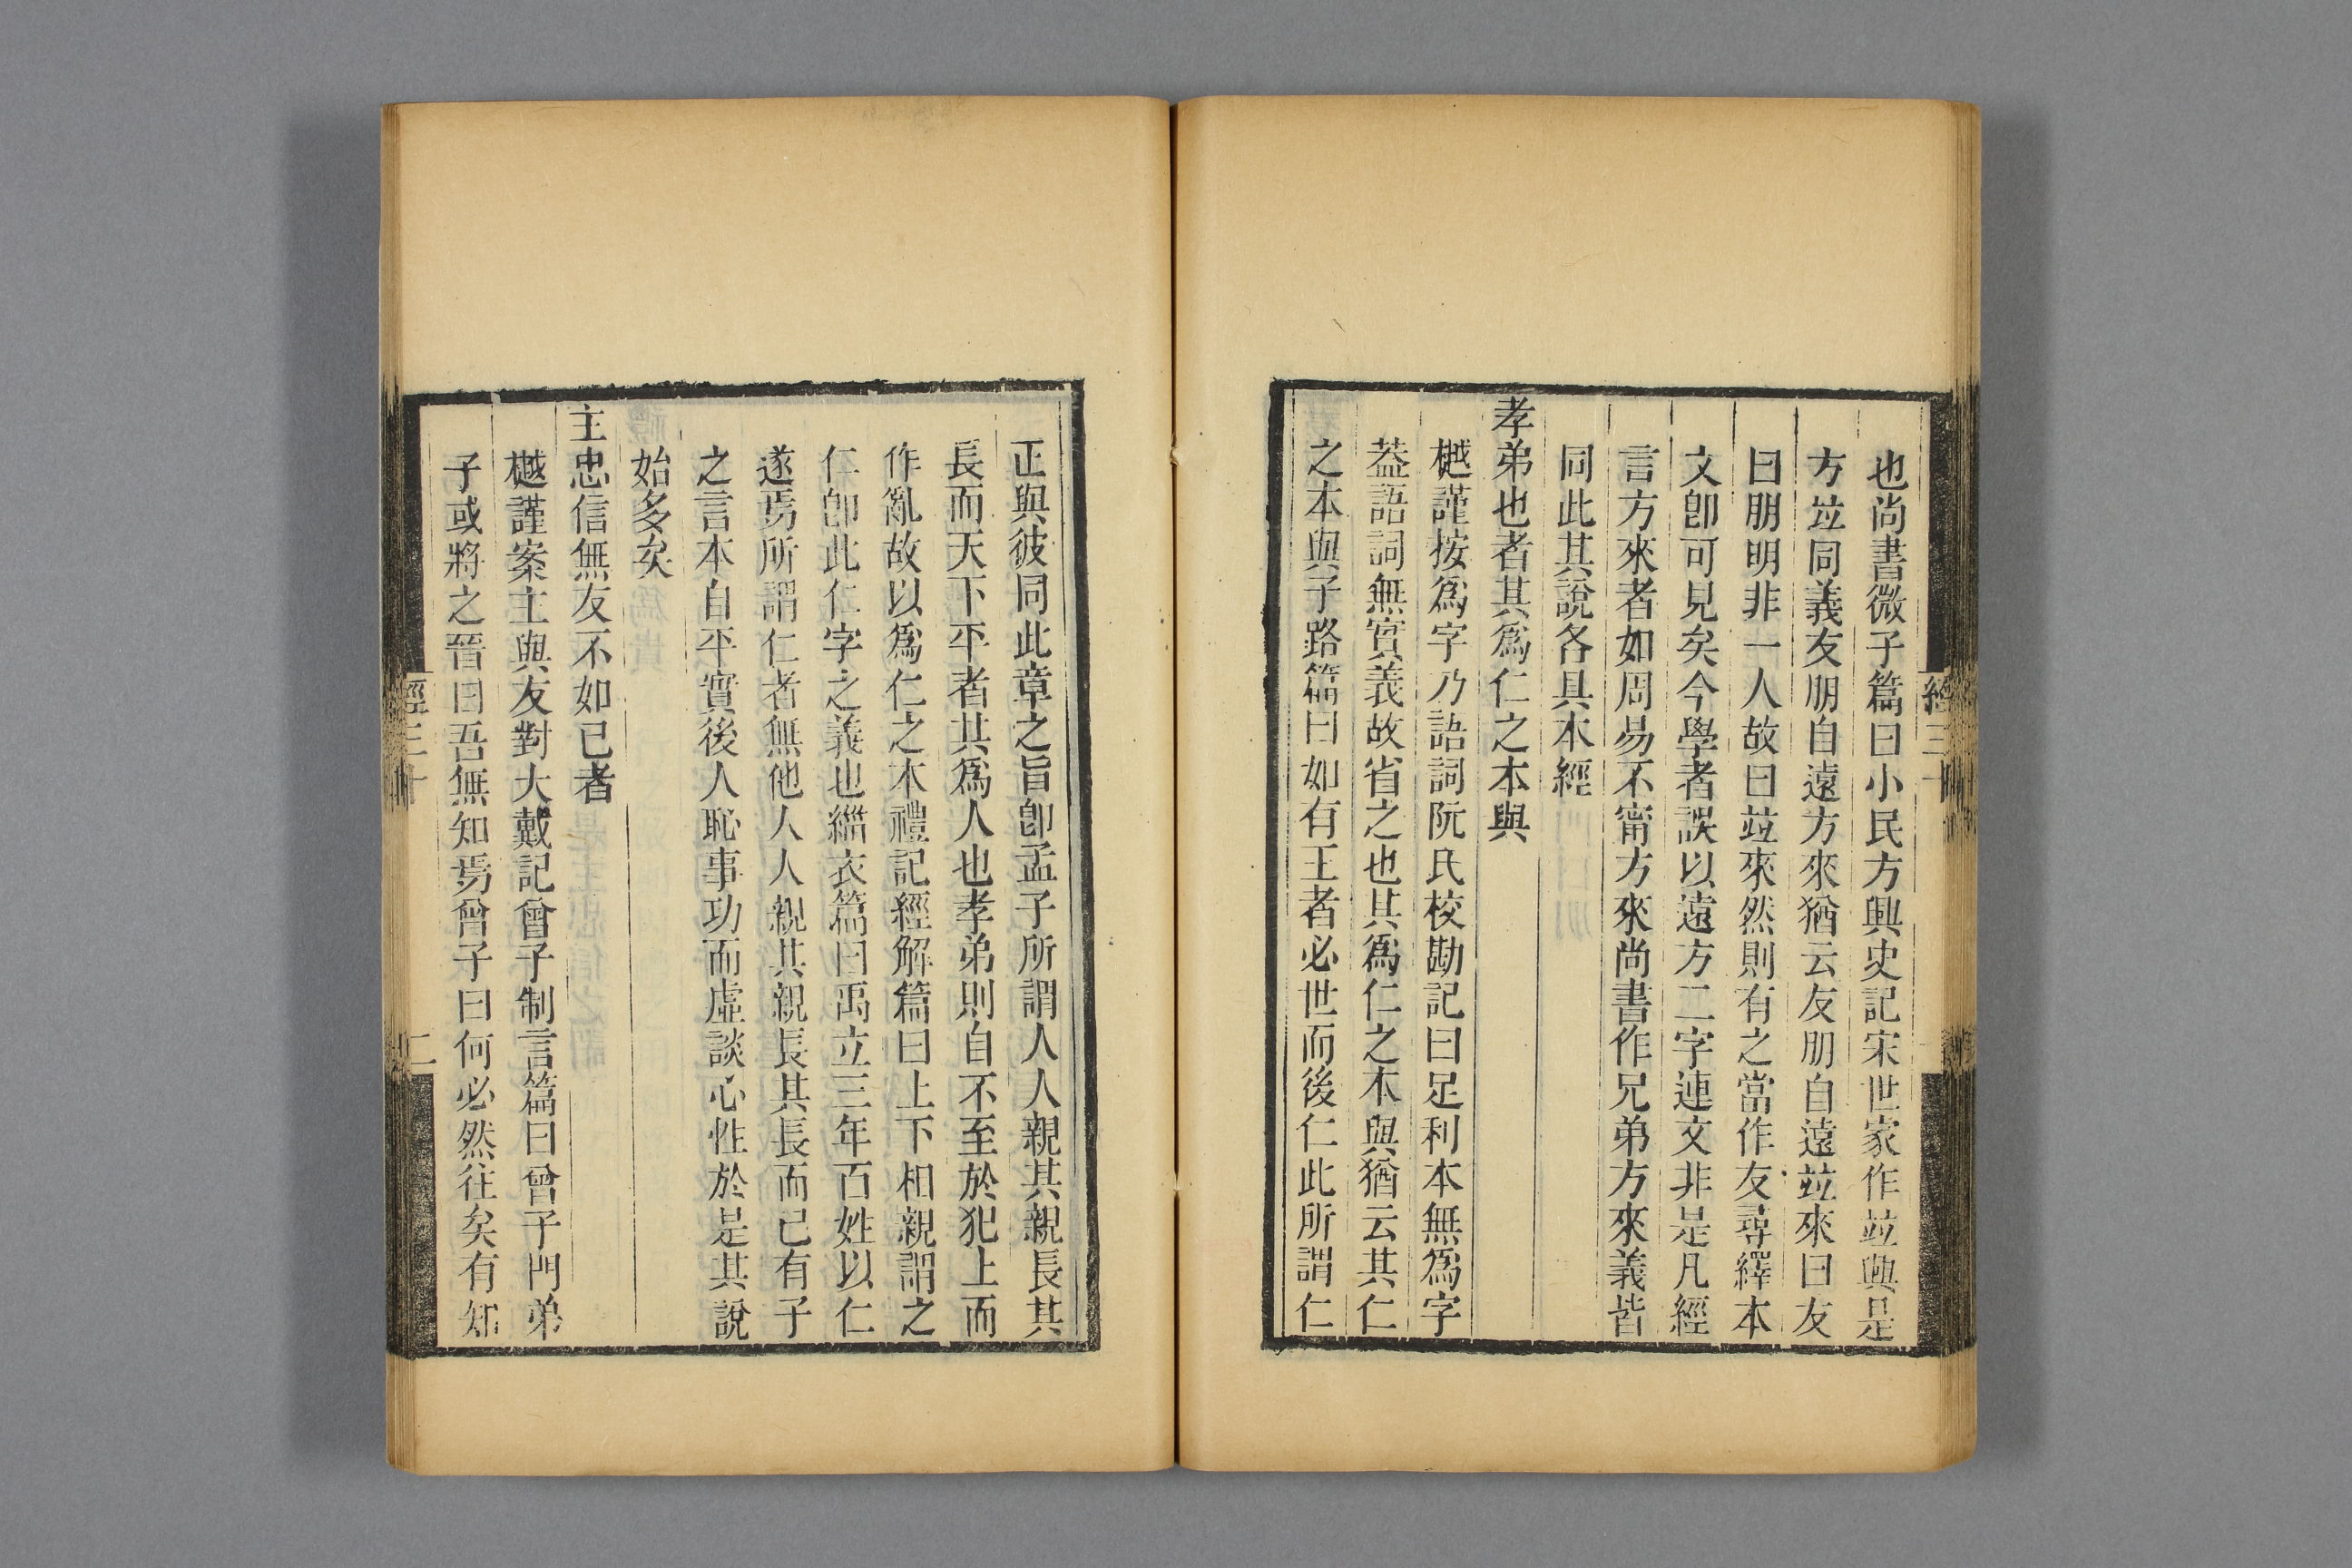 也尚書微子篇曰小民方興史記宋世家作竝興是
方竝同義友朋自遠方來猶云友朋自遠竝來曰友
曰朋明非一人故曰竝來然則有之當作友尋繹本
文卽可見矣今學者誤以遠方二字連文非是凡經
言方來者如周易不甯方來尚書作兄弟方來義皆
同此其說各具本經
孝弟也者其爲仁之本與
樾謹按爲字乃語詞阮氏校勘記曰足利本無爲字
葢語詞無實義故省之也其爲仁之本與猶云其仁
之本與子路篇曰如有王者必世而後仁此所謂仁
正與彼同此章之旨卽孟子所謂人人親其親長其
長而天下平者其爲人也孝弟則自不至於犯上而
作亂故以爲仁之本禮記經解篇曰上下相親謂之
仁卽此仁字之義也緇衣篇曰禹立三年百姓以仁
遂焉所謂仁者無他人人親其親長其長而已有子
之言本自平實後人恥事功而虛談心性於是其說
始多矣
主忠信無友不如己者
樾謹案主與友對大戴記曾子制言篇曰曾子門弟
子或將之晉曰吾無知焉曾子曰何必然往矣有知
經三十
二